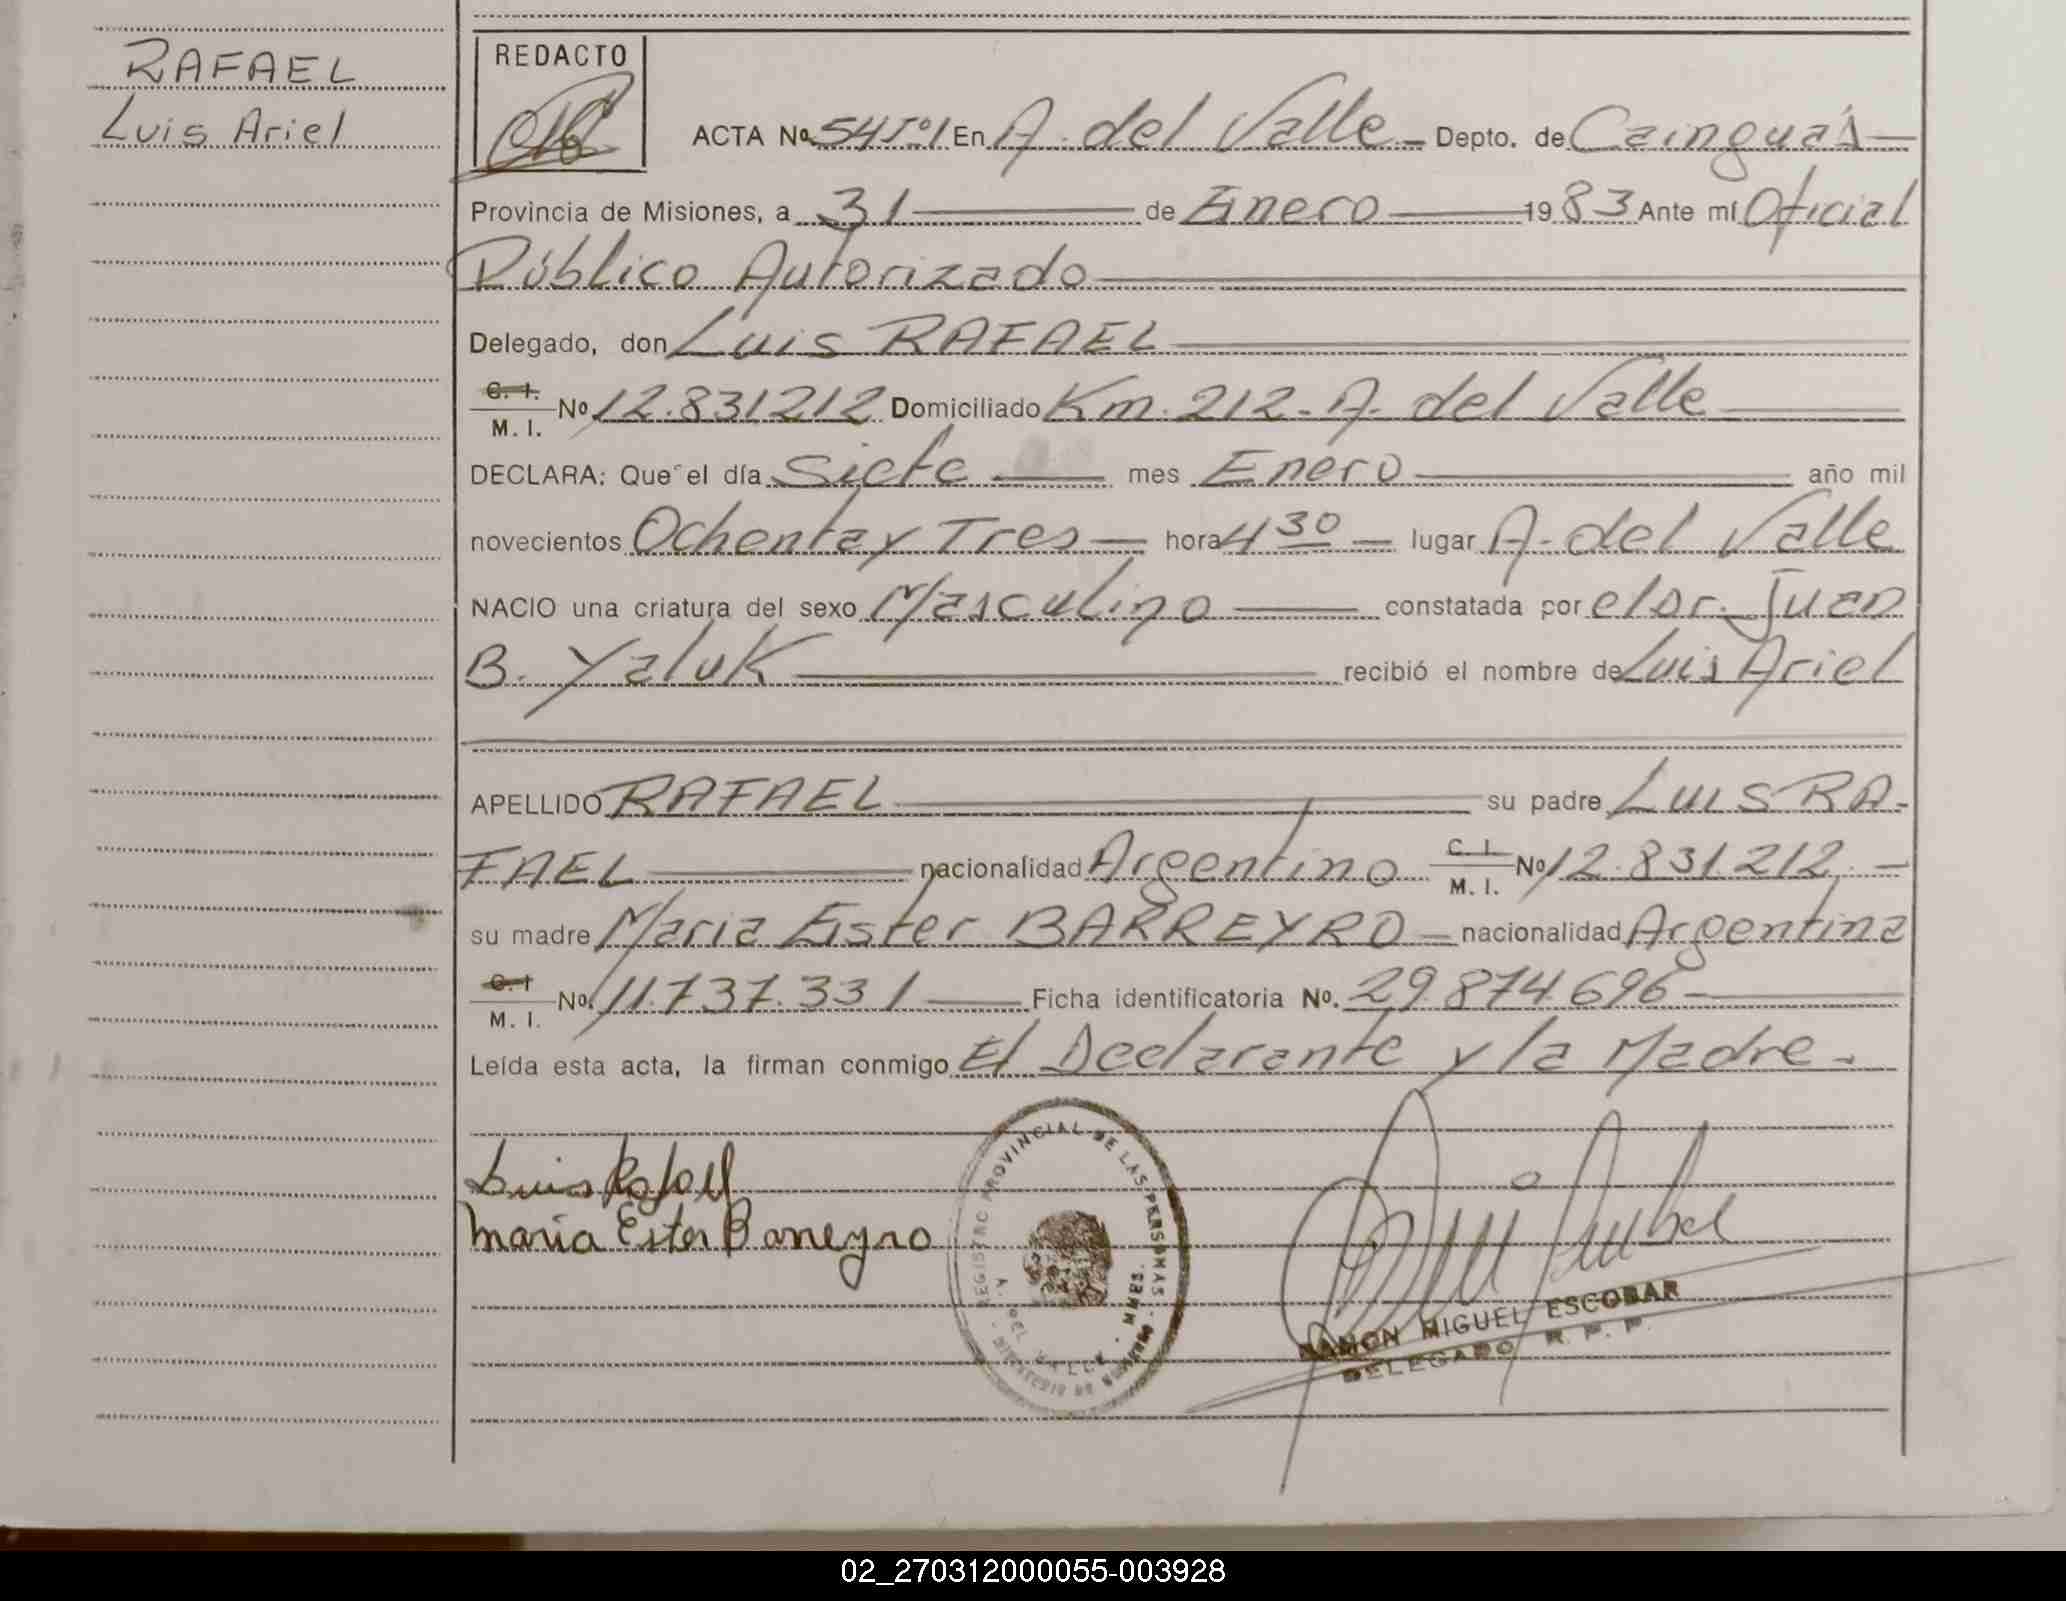 RAFAEL
Luis Ariel
REDACTO
ACTA Nº 54 Jº 1 En A. del Valle - Depto. de Cainguás
Provincia de Misiones, a 31 de Enero 1983 Ante mí Oficial
Público Autorizado
Delegado, don Luis RAFAEL
C. I. / M. I. Nº 12.831212 Domiciliado Km. 212 - A. del Valle
DECLARA: Que el día Siete mes Enero año mil
novecientos Ochenta y Tres - hora 4 30 - lugar A. del Valle
NACIO una criatura del sexo Masculino constatada por el Dr. Juan
B. Yaluk recibió el nombre de Luis Ariel
APELLIDO RAFAEL su padre LUIS RA-
FAEL nacionalidad Argentino C. I. / M. I. Nº 12.831.212. -
su madre Maria Ester BARREYRO - nacionalidad Argentina
C. I / M. I. No. 11.737.331 Ficha identificatoria No. 29.874.696 -
Leída esta acta, la firman conmigo El Declarante y la Madre.
Luis Rafael
maria Ester Barreyro
REGISTRO PROVINCIAL DE LAS PERSONAS
A. DEL VALLE
RAMON MIGUEL ESCOBAR
DELEGADO R. P. P.
02_270312000055-003928